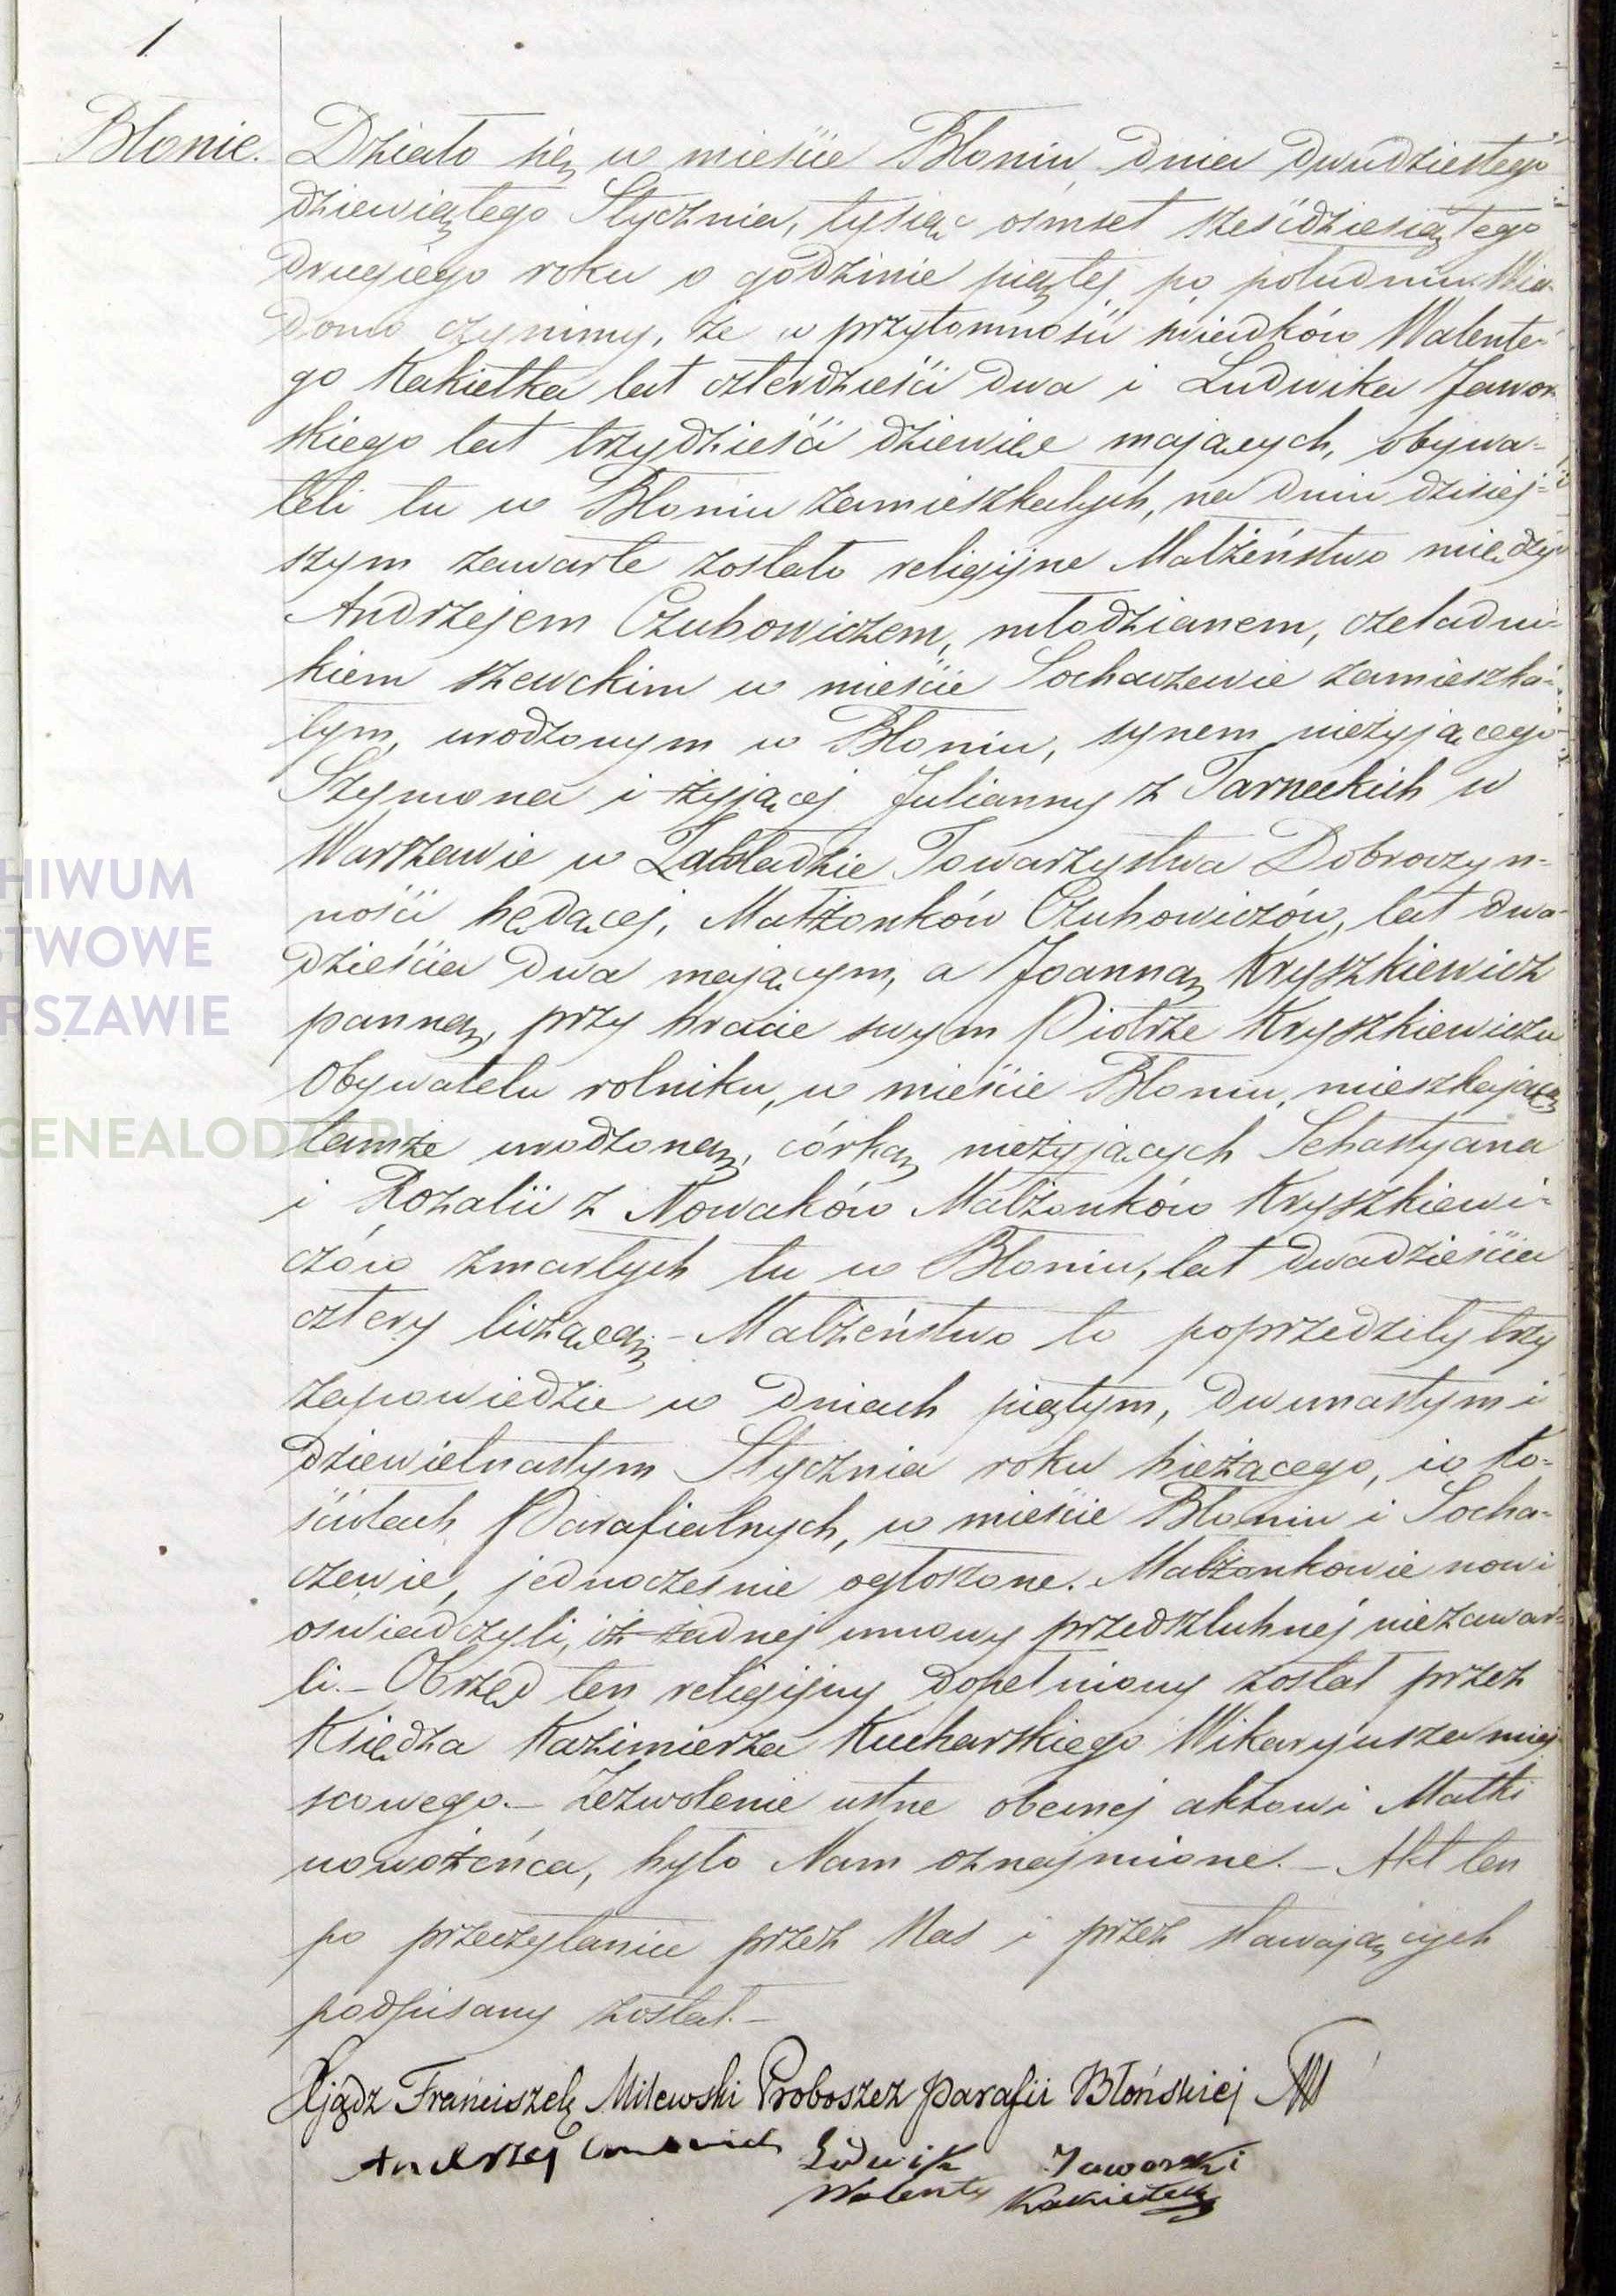 1
Błonie.
Działo się w mieście Błoniu dnia dwudziestego
dziewiątego Stycznia, tysiąc ośmset sześćdziesiątego
drugiego roku o godzinie piątej po południu. Wia-
domo czynimy, że w przytomności świadków Walente-
go Kakietka lat czterdzieści dwa i Ludwika Jawor-
skiego lat trzydzieści dziewięć mających, obywa-
teli tu w Błoniu zamieszkałych, na dniu dzisiej-
szym zawarte zostało religijne Małżeństwo między
Andrzejem Czubowiczem, młodzianem, czeladni-
kiem szewckim w mieście Sochaczewie zamieszka-
łym, urodzonym w Błoniu, synem nieżyjącego
Szymona i żyjącej Julianny z Tarneckich w
Warszawie w Zakładzie Towarzystwa Dobroczyn-
ności będącej, Małżonków Czubowiczów, lat dwa-
dzieścia dwa mającym, a Joanną Kryszkiewicz
panną, przy bracie swym Piotrze Kryszkiewiczu
Obywatelu rolniku, w mieście Błoniu, mieszkającą
tamże urodzoną, córką nieżyjących Sebastyana
i Rozalii z Nowaków Małżonków Kryszkiewi-
czów zmarłych tu w Błoniu, lat dwadzieścia
cztery liczącą – Małżeństwo to poprzedziły trzy
zapowiedzie w dniach piątym, dwunastym i
dziewietnastym Stycznia roku bieżącego, w ko-
ściołach Parafialnych, w mieście Błoniu i Socha-
czewie, jednocześnie ogłoszone. Małżonkowie nowi
oświadczyli, iż żadnej umowy przedszlubnéj niezawar-
li. – Obrzęd ten religijny dopełniony został przez
Księdza Kazimierza Kucharskiego Wikaryusza miej
scowego. – Zezwolenie ustne obecnej aktowi Matki
nowożeńca, było Nam oznajmione. – Akt ten
po przeczytaniu przez Nas i przez stawających
podpisany został. –
Xjądz Franciszek Milewski Proboszcz parafii Błońskiej
Andrzej
Ludwik Jaworski
Walenty Kakietek
HIWUM
STWOWE
RSZAWIE
GENEALODZY.PL